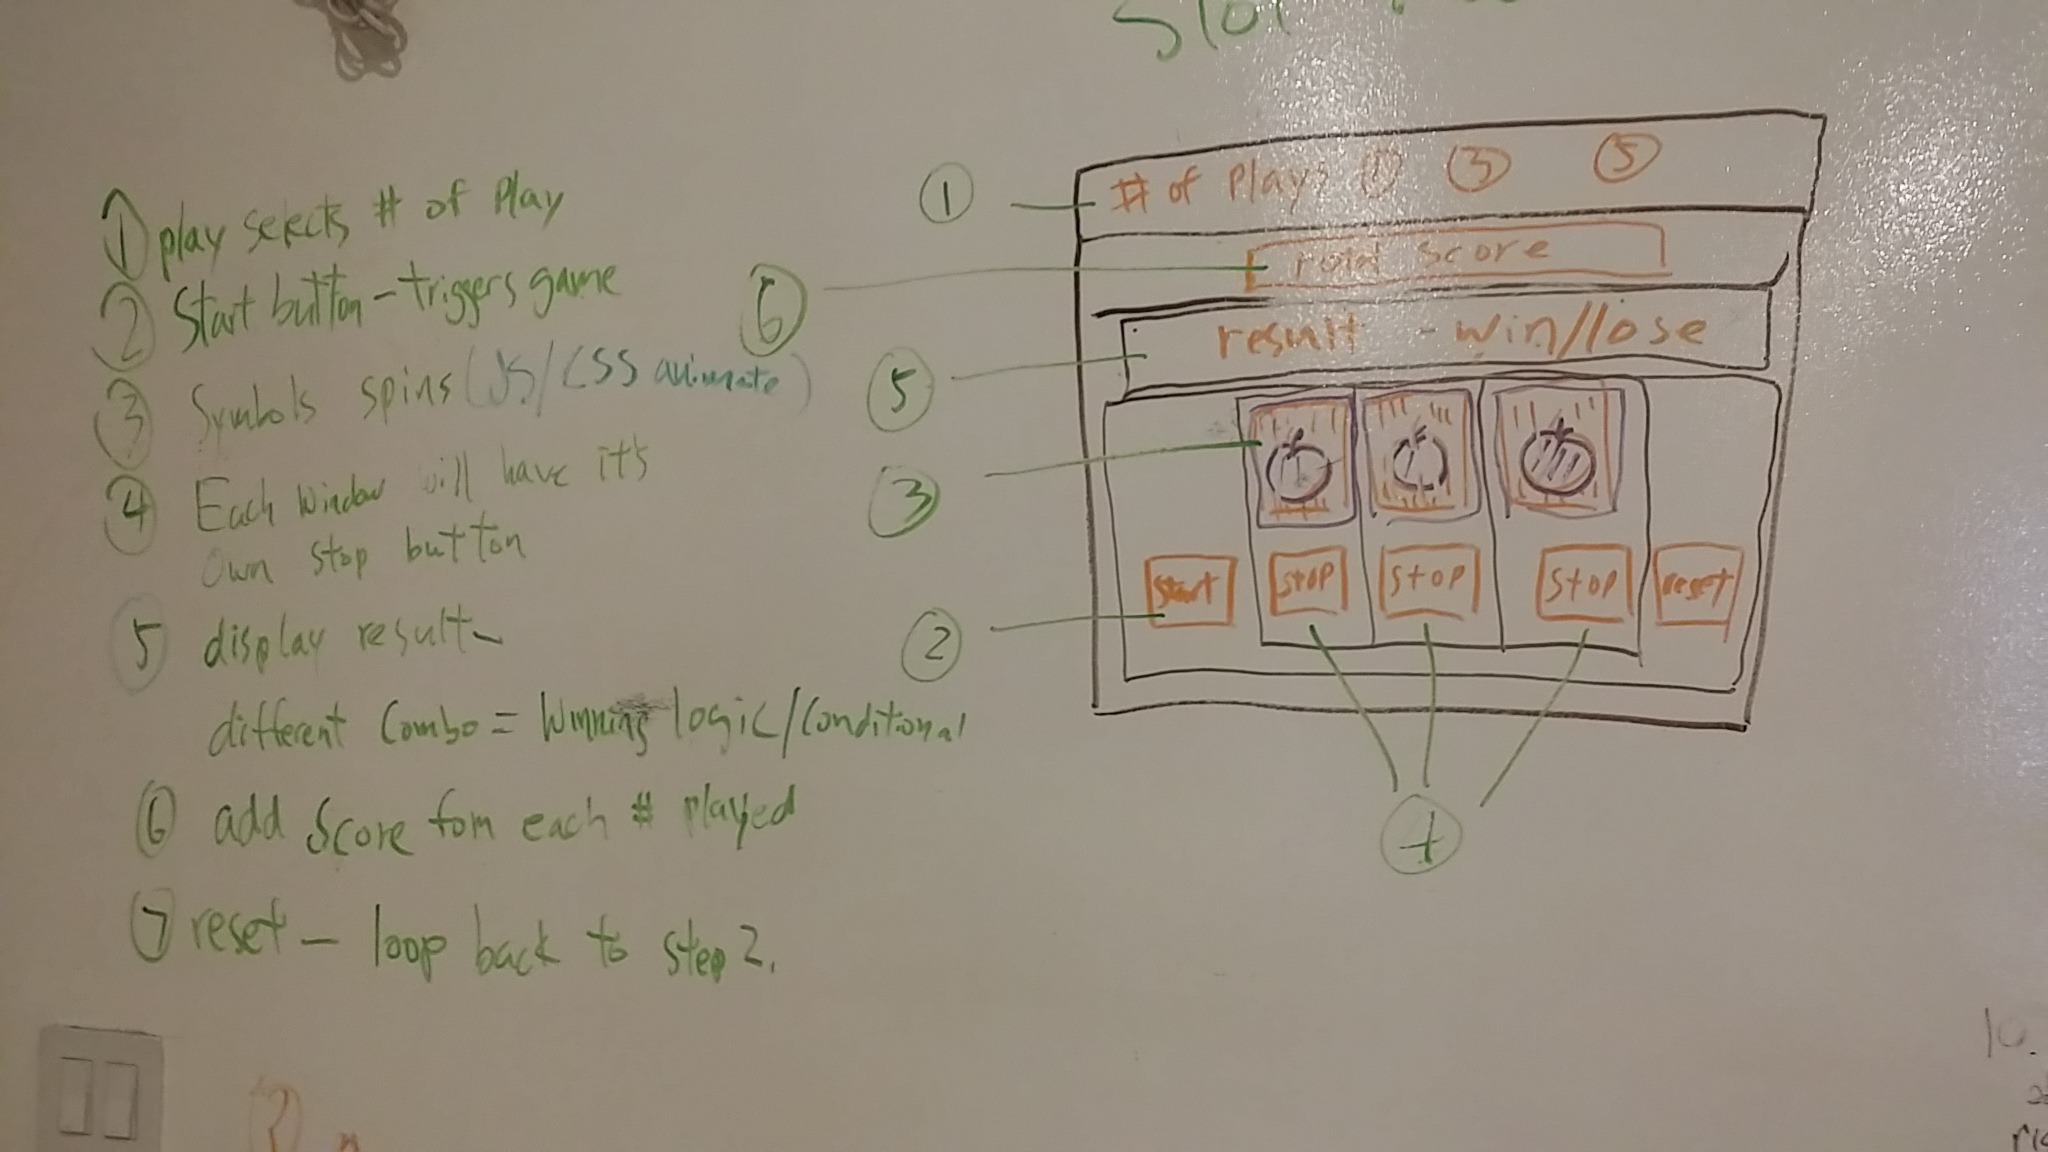 Slot
① play selects # of Play
② Start button - triggers game
③ Symbols spins (JS/CSS animate)
④ Each window will have it's
own stop button
⑤ display result -
different Combo = Winning logic/Conditional
⑥ add Score fom each # played
⑦ reset - loop back to step 2.
①
# of Plays ① ③ ⑤
⑥
score
⑤
result - win//lose
③
start stop stop stop reset
②
4
10.